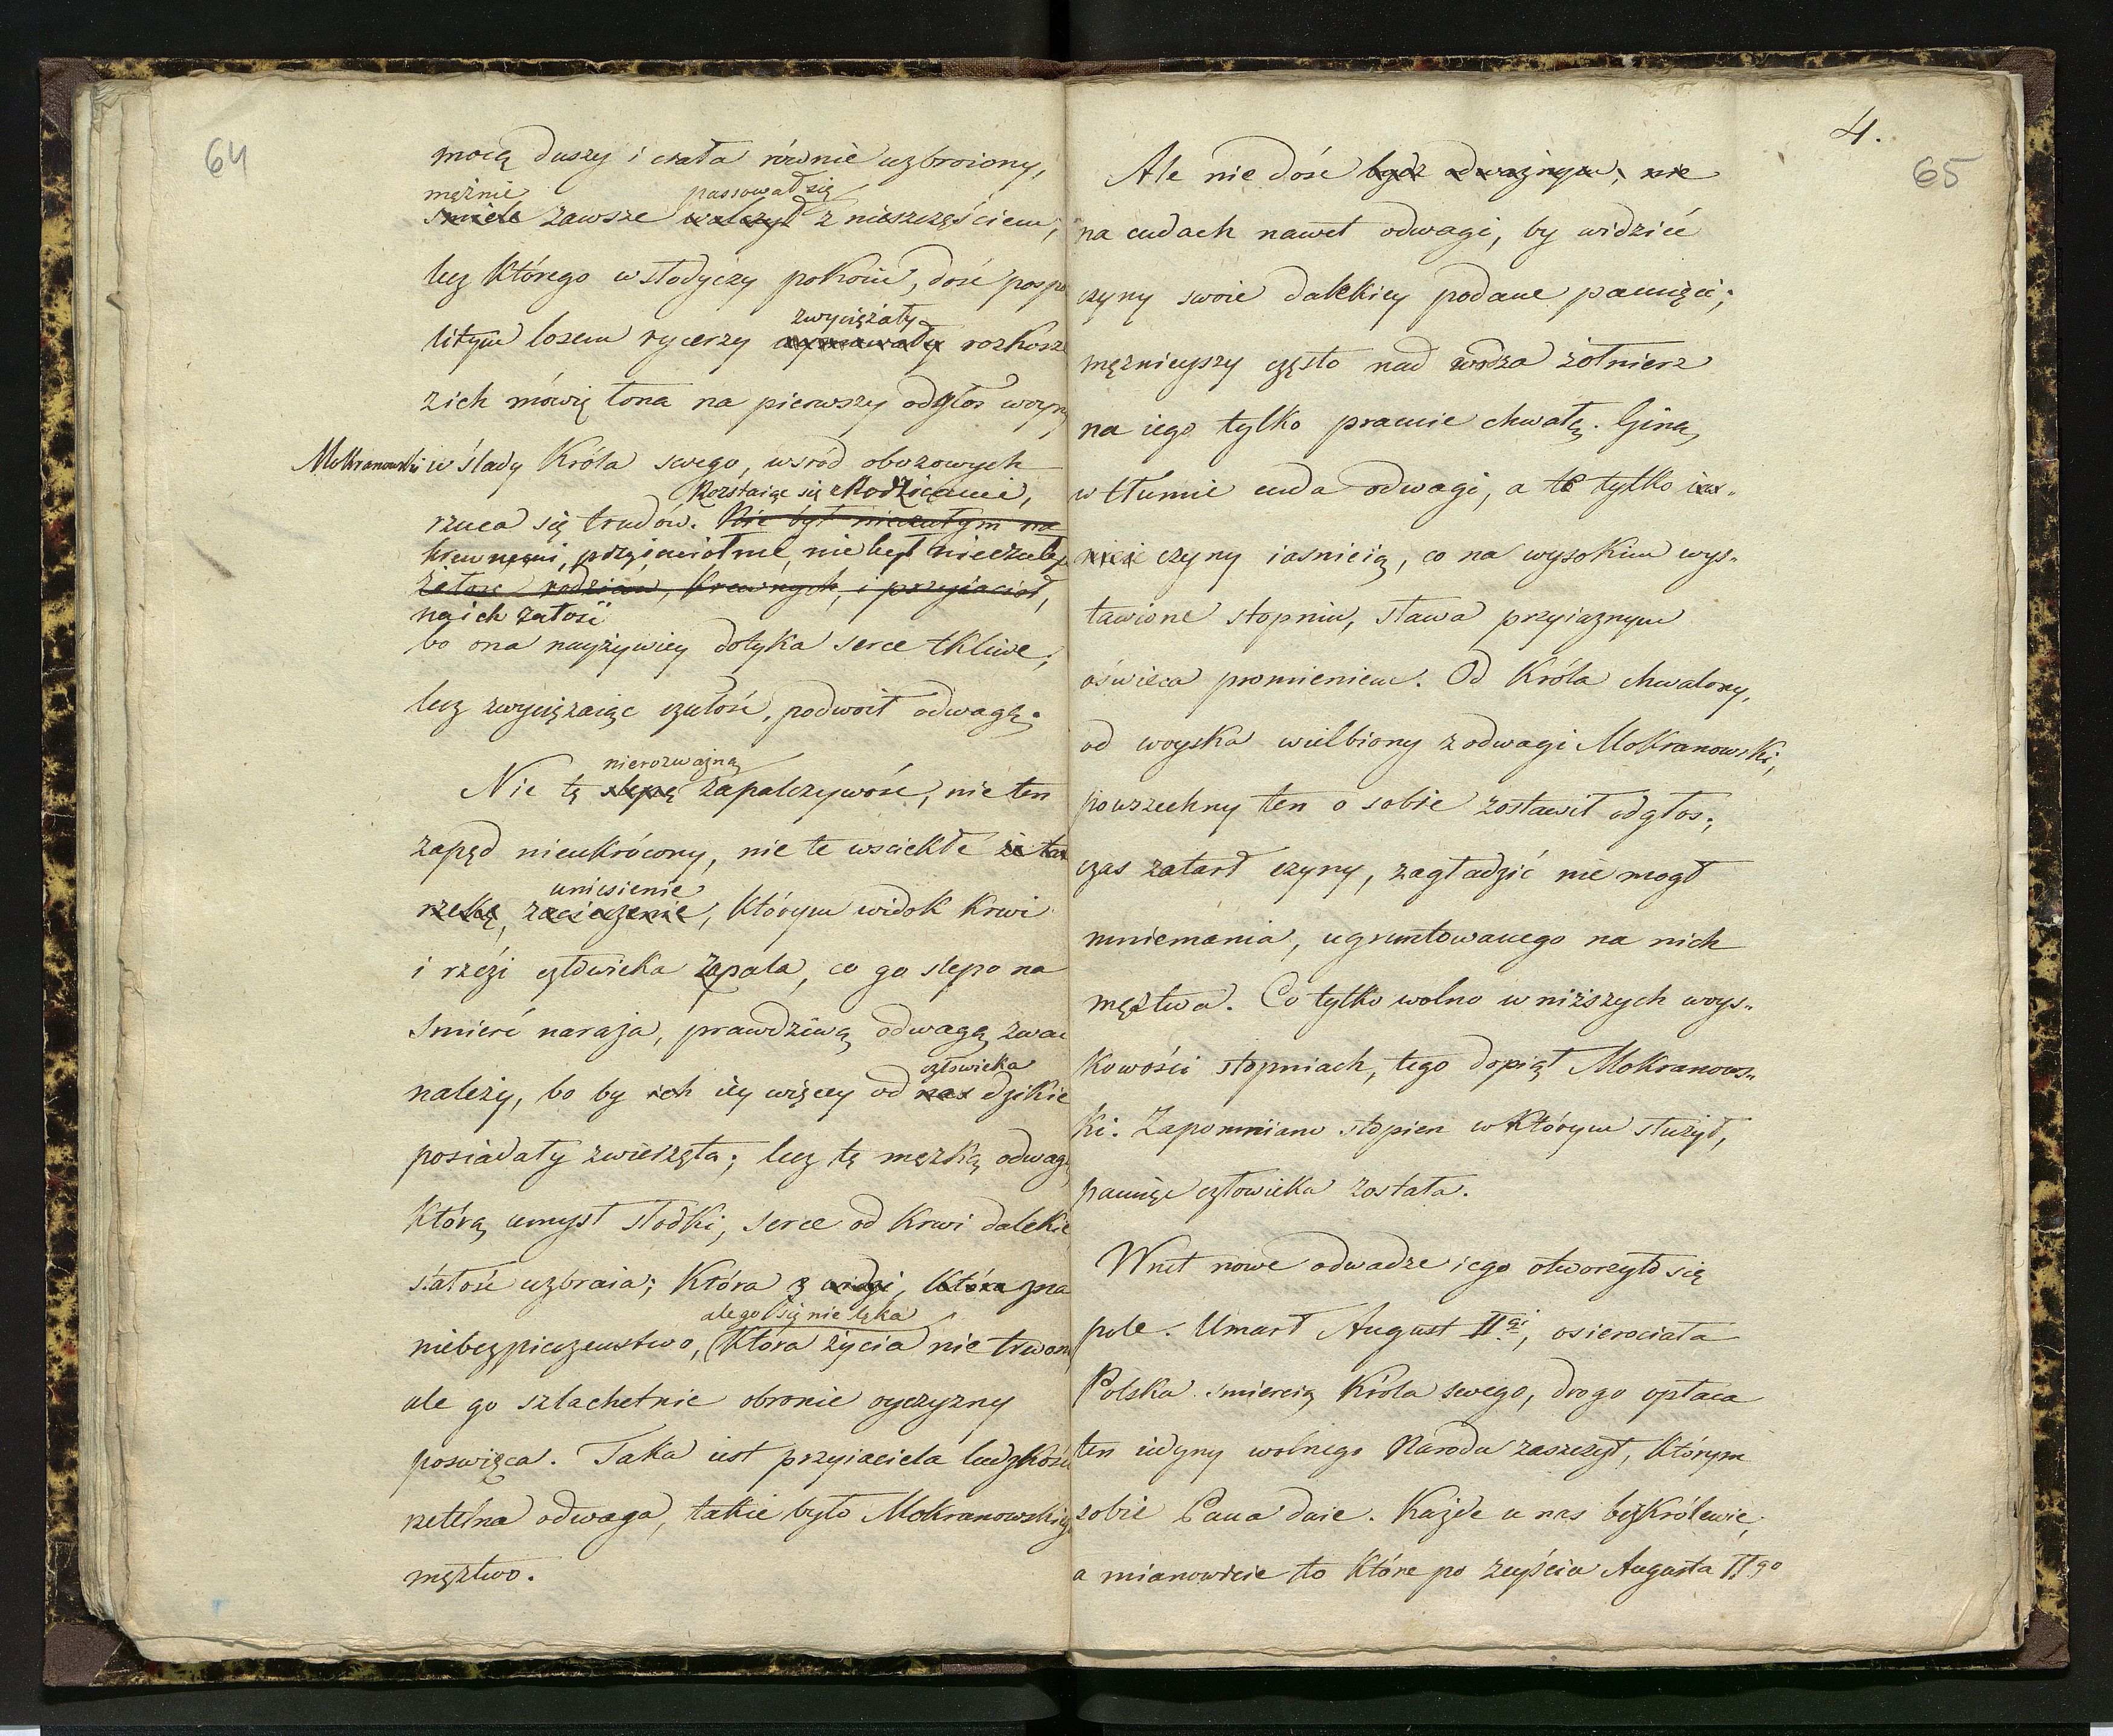 64
mocą duszy i ciała równie uzbroiony,
mężnie passował się
smiele zawsze walczył z nieszczęściem,
lecz którego w słodyczy pokoiu, dość pospo
zwyciężały
litym losem rycerzy rozkosze
z ich mówię łona na pierwszy odgłos woyny
Mokranowski w ślady Króla swego, wsród obozowych
Rozstaiąc się z Rodzicami,
rzuca się trudów. Nie był nieczułym na
krewnemi, przyiaciołmi, nie był nieczuły
żałość rodziców, krewnych, i przyiaciół,
na ich żałość
bo ona nayżywiey dotyka serce tkliwe;
lecz zwyciężaiąc czułość, podwoił odwagę.
nierozważną
Nie tę slepą zapalczywość, nie ten
zapęd nieukrócony, nie te wściekłe że tak
uniesienie
rzekę, zacieczenie, którym widok krwi
i rzézi człowieka zapala, co go slepo na
smierć naraża, prawdziwą odwagą zwać
człowieka
należy, bo by ich iey więcey od nas dzikie
posiadały zwierzęta; lecz tę męzką odwagę
którą umysł słodki, serce od krwi dalekie
stałość uzbraia; która widzi, która zna
ale go się nie lęka
niebezpieczeństwo, która życia nie trwoni
ale go szlachetnie obronie oyczyzny
poswięca. Taka iest przyiaciela ludzkości
rzetelna odwaga, takie było Mokranowskiego
męztwo.
4.
65
Ale nie dość bydź odważnym, nie
na cudach nawet odwagi, by widzieć
czyny swoie dalekiey podane pamięci;
mężnieyszy często nad wodza żołnierz
na iego tylko pracuie chwałę. Giną
w tłumie cuda odwagi, a te tylko ias„
nieie czyny iasnieią, co na wysokim wys„
tawione stopniu, sława przyiaznym
oświeca promieniem. Od Króla chwalony,
od woyska wielbiony z odwagi Mokranowski,
powszechny ten o sobie zostawił odgłos;
czas zatarł czyny, zagładzić nie mogł
mniemania, ugruntowanego na nich
męztwa. Co tylko wolno w niższych woys„
kowości stopniach, tego dopiął Mokranows„
ki. Zapomniano stopien w którym służył,
pamięć człowieka została.
Wnet nowe odwadze iego otworzyło się
pole. Umarł August IIgi, osierociała
Polska smiercią Króla swego, drogo opłaca
ten iedyny wolnego Narodu zaszczyt, którym
sobie Pana daie. Każde u nas bezkrólewie,
a mianowicie to które po zeyściu Augusta IIgo